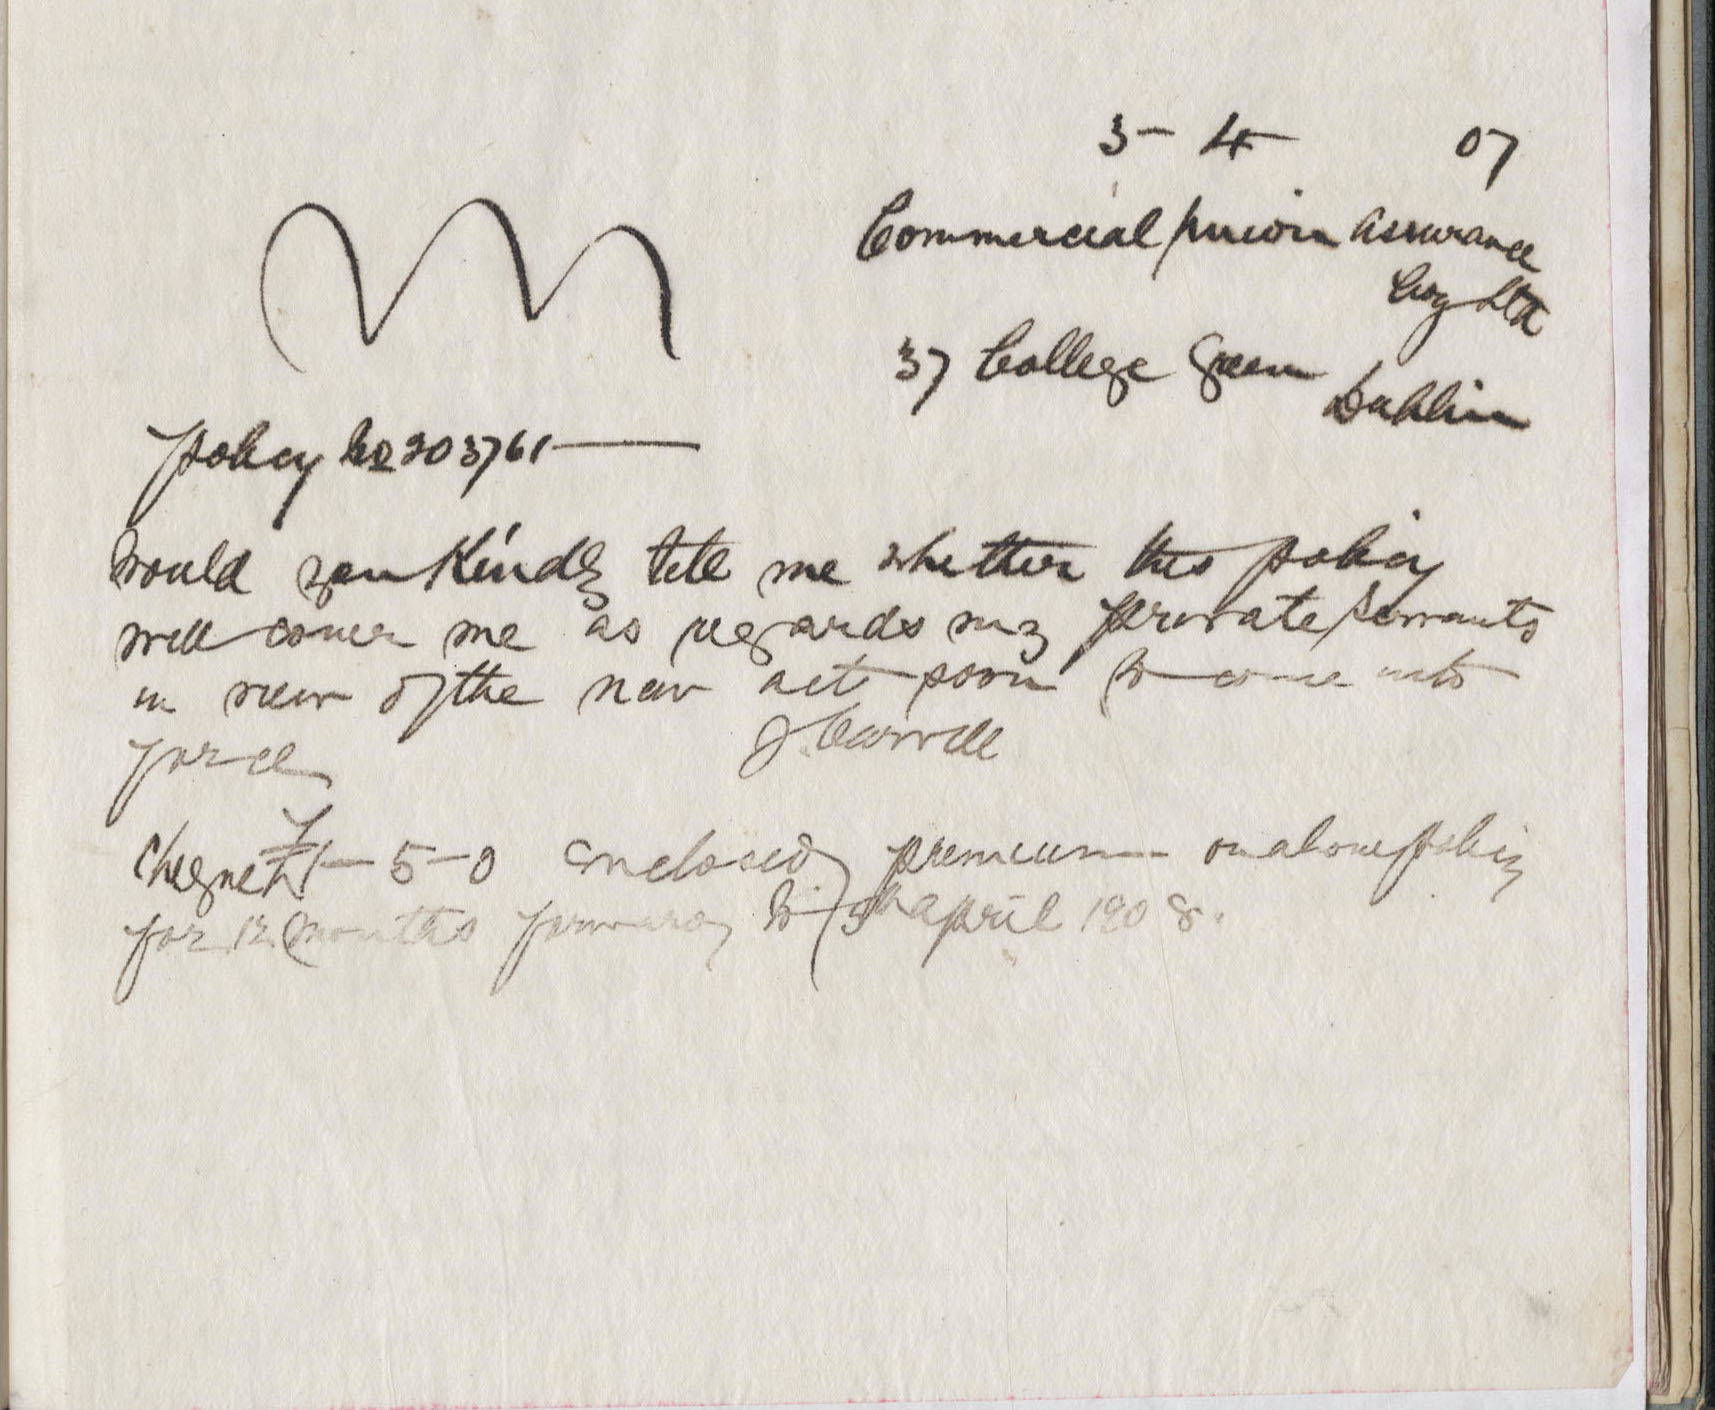 3 - 4 07
Commercial Union Assurance
Coy Ltd
37 College Green
Dublin
Policy No 203761
Would you Kindly tell me whether this policy
will cover me as regards my private servants
in view of the new act soon to come into
force
J Carroll
Cheque £1 - 5 - 0 enclosed premium on above policy
for 12 months forward to 5th April 1908.